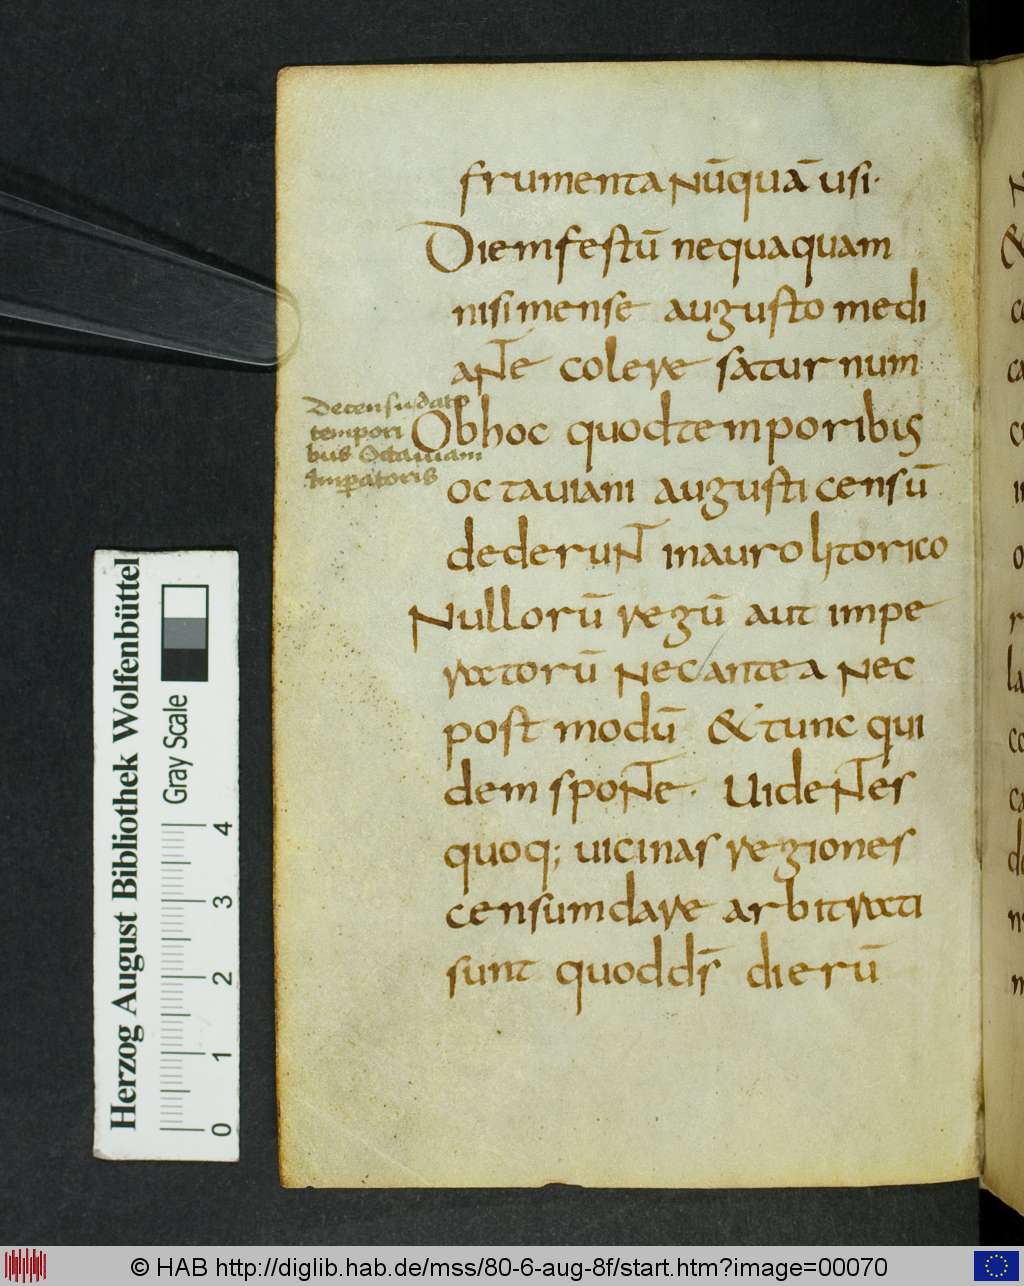 frumenta nūquā usi·
Diem festū nequaquam
nisi mense augusto medi
ante colere saturnum
De censu dato
tempori
bus Octauiani
Imꝑatoris
Ob hoc quod temporibus
octauiani augusti censū
dederunt in auro litorico
Nullorū regū aut impe
ratorū nec antea nec
post modū & tunc qui
dem sponte· Uidentes
quoq; uicinas regiones
censum dare arbitrati
sunt quod ds̄ dierū
Herzog August Bibliothek Wolfenbüttel
Gray Scale
0 1 2 3 4
© HAB http://diglib.hab.de/mss/80-6-aug-8f/start.htm?image=00070